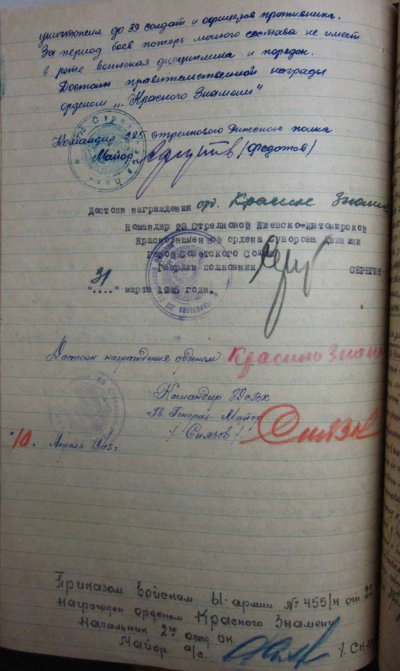 уничтожил до 39 солдат и офицеров противника.
За период боев потерь личного состава не имеет
в роте воинская дисциплина и порядок.
Достоин правительственной награды
орденом "Красного Знамени"
Командир 225 стрелкового полка
Майор /Федотов/
Достоин награждения орд. Красное Знамя
Командир 23 Стрелковой Киевско-Житомирской
Краснознаменной ордена Суворова дивизии
Герой Советского Союза
Гвардии полковник СЕРЕГИН
31
"...." марта 1945 года.
Достоин награждения орденом Красное Знам
Командир
Гв. Генерал Майор
/ Сиязов /
Сиязов
"10" Апреля 1945г.
Приказом войскам 61-армии № 455/н от 22
награжден орденом Красного Знамени
Начальник 2го отд ОК
Майор а/с.